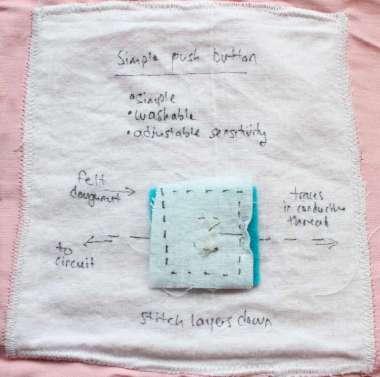 Simple push button
• Simple
• washable
• adjustable sensitivity
felt
doughnut
traces
in conductive
thread
to
circuit
Stitch layers down